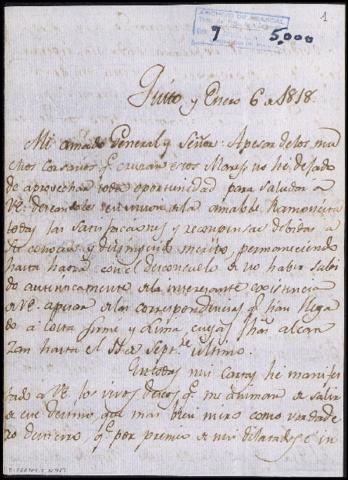 1
7 5,000
Quito y Enero 6 de 1818.
Mi amado General y Señor: Apesar de los mu
chos Corsarios q.e cruzan estos Mares, no he dejado
de aprovechar toda oportunidad para saludar a
VE. deseandole en union de la amable Ramoncita
todas las satisfacciones y recompensas debidas a
su conocido y distinguido merito, permaneciendo
hasta haora con el desconsuelo de no haber sabi
do autenticamente de la interesante existencia
de VE. apesar de las correspondencias q.e han llega
do a Costa firme y Lima cuyas fhas alcan
zan hasta el 11 de Sept.re ultimo.
En todas mis Cartas he manifes
tado a VE. los vivos deseos q.e me animan de salir
de este destino, que mas bien miro como verdade
ro destierro q.e por premio de mis dilatados è in